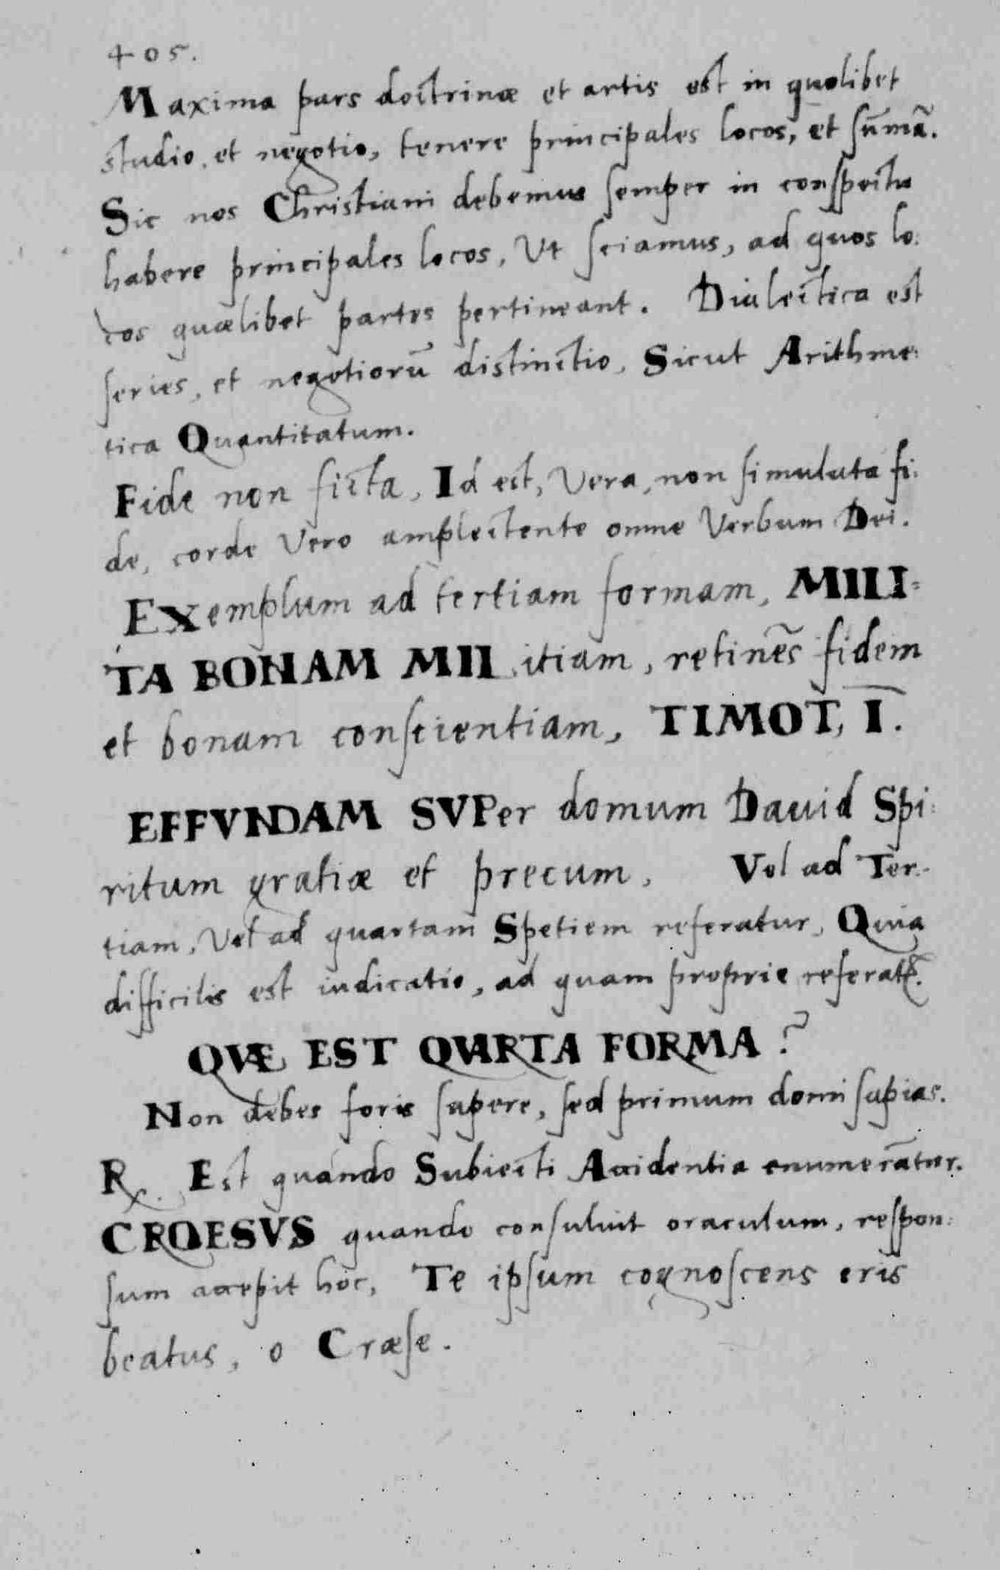 405.
Maxima pars doctrinæ et artis est in quolibet
studio, et negotio, tenere principales locos, et sum̄ā.
Sic nos Christiani debemus semper in conspectu
habere principales locos, Ut sciamus, ad quos lo:
cos quælibet partes pertineant. Dialectica est
series, et negotiorū distinctio, Sicut Arithme:
tica Quantitatum.
Fide non ficta, Id est, Vera, non simulata fi:
de, corde Vero amplectente omne Verbum Dei.
EXemplum ad tertiam formam, MILI:
TA BONAM MILitiam, retinēs fidem
et bonam conscientiam, TIMOT, I.
EFFVNDAM SVPer domum Dauid Spi:
ritum gratiæ et precum, Vel ad Ter:
tiam, Vel ad quartam Spetiem referatur, Quia
difficilis est iudicatio, ad quam proprie referat̃.
QVÆ EST QVARTA FORMA?
Non debes foris sapere, sed primum domi sapias.
R. Est quando Subiecti Accidentia enumerātur.
CROESVS quando consuluit oraculum, respon:
sum accepit hoc, Te ipsum cognoscens eris
beatus, o Cræse.